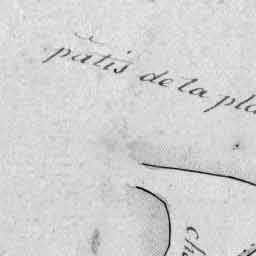 pătis de la pla
ch